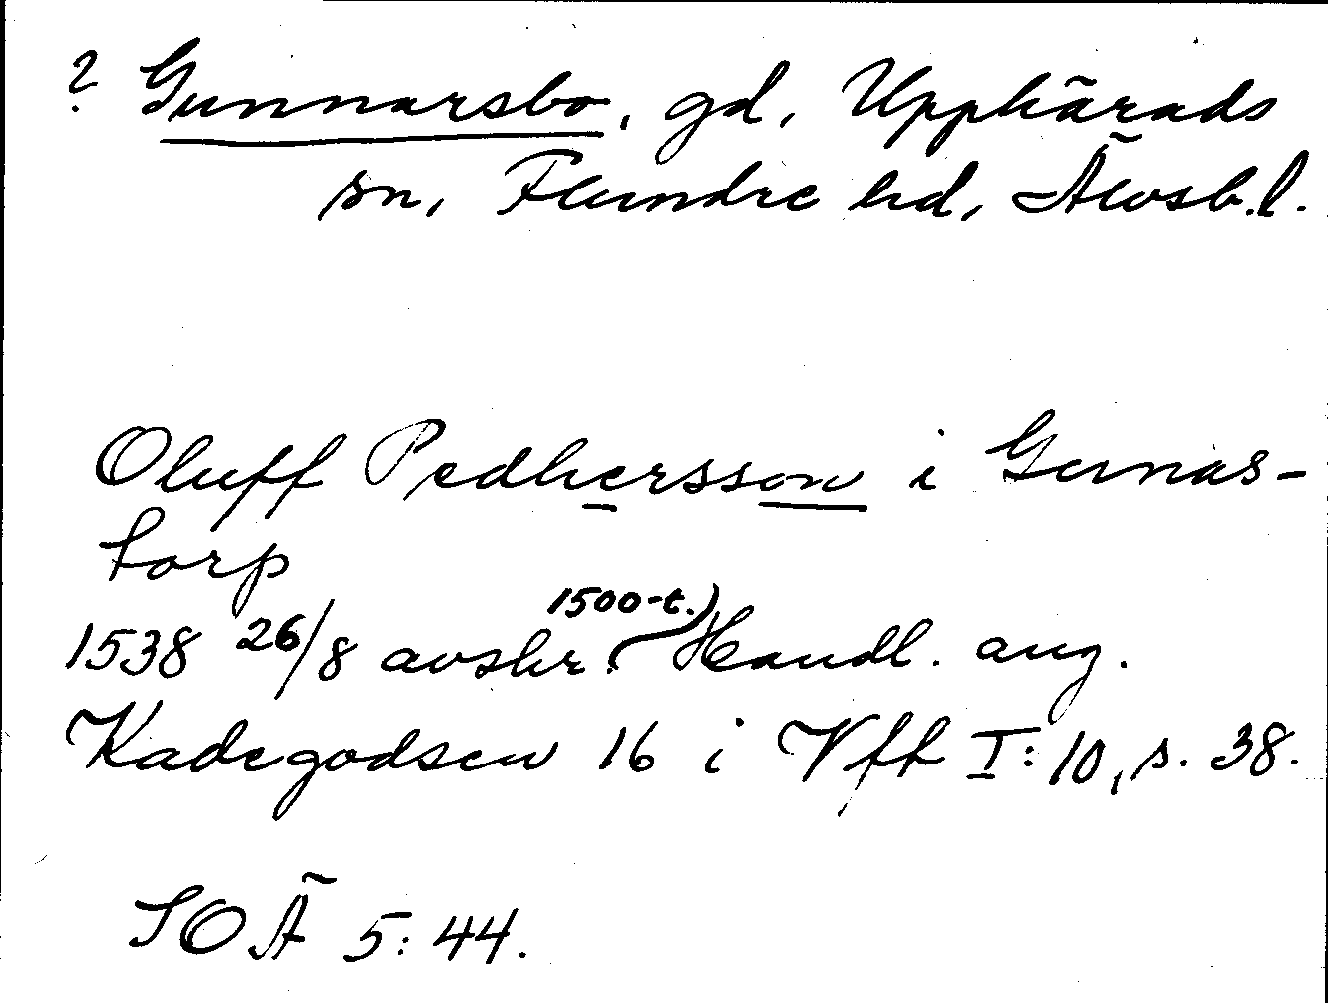 ? Gunnarsbo, gd, Upphärads
sn, Flundre hd, Älvsb.l.
Oluff Pedhersson i Gunas-
torp
1538 26/8 avskr. (1500-t.) Handl. ang.
Kadegodsen 16 i Vff I:10, s. 38.
SOÄ 5:44.